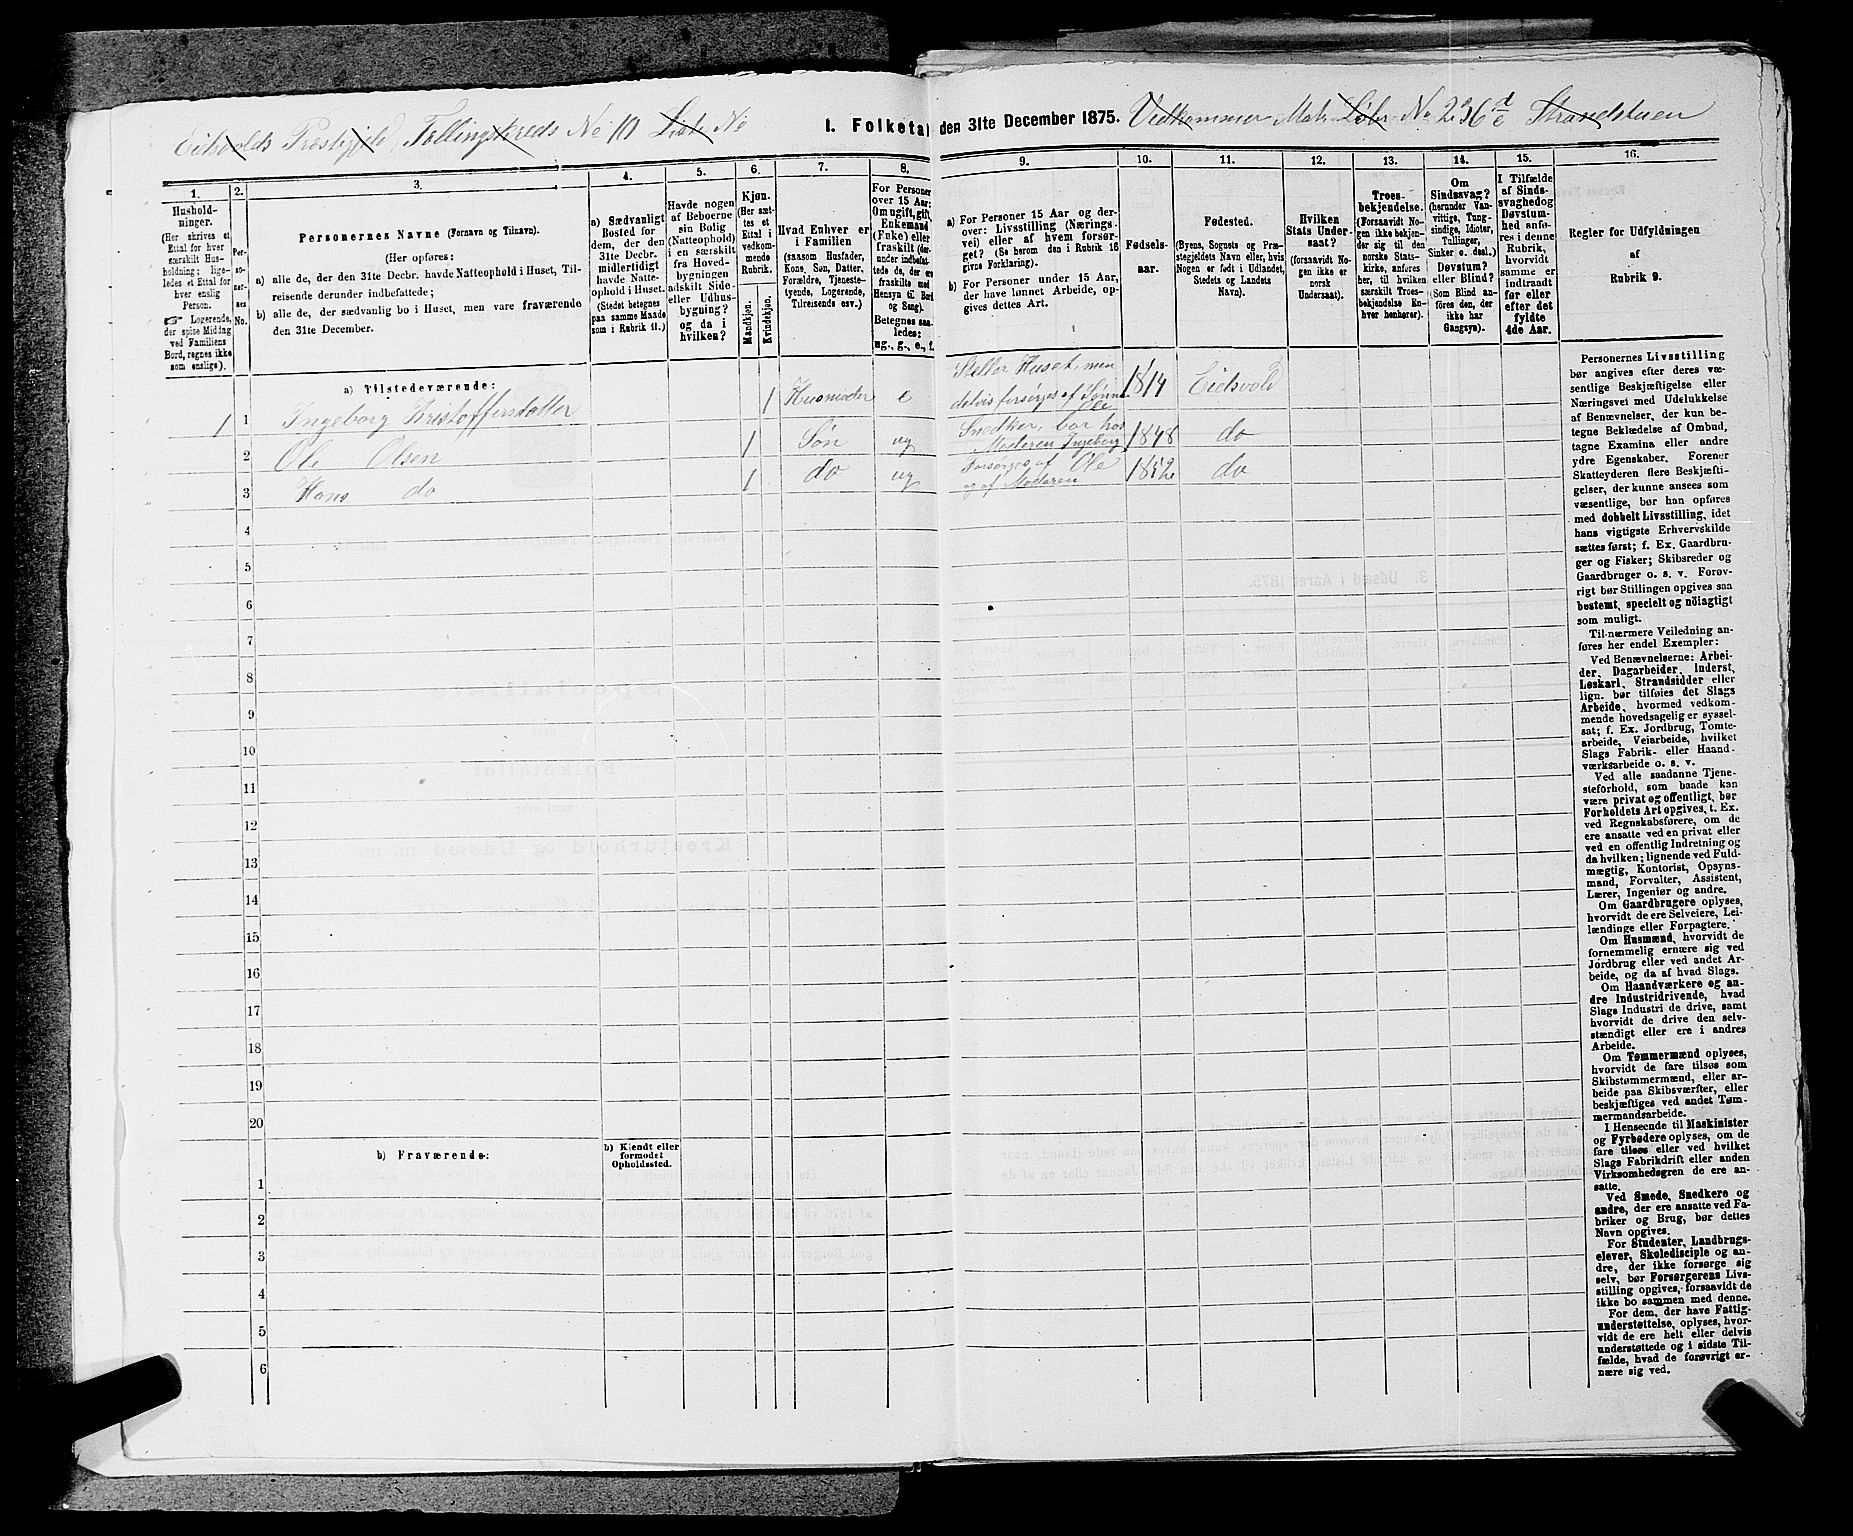 Eidsvolds Præstegjeld, Tællingskreds No 10 Liste No
I. Folketa den 31te December 1875. Vedkommer Mat. Løbe No 236 d e Strandstuen
1.
2.
3.
4.
5.
6.
7.
8.
9.
10.
11.
12.
13.
14.
15.
16.
Hushold-
ninger.
(Her skrives et
Ettal for hver
særskilt Hus-
holdning; lige-
ledes et Ettal for
hver enslig
Person.
☞ Logerende,
der spise Middag
ved Familiens
Bord, regnes ikke
som enslige).
Per-
so-
ner-
nes
No.
Personernes Navne (Fornavn og Tilnavn).
(Her opføres:
a) alle de, der den 31te Decbr. havde Natteophold i Huset, Til-
reisende derunder indbefattede;
b) alle de, der sædvanlig bo i Huset, men vare fraværende
den 31te December.
a) Sædvanligt
Bosted for
dem, der den
31te Decbr.
midlertidigt
havde Natte-
ophold i Huset.
(Stedet betegnes
paa samme Maade
som i Rubrik 11.)
Havde nogen
af Beboerne
sin Bolig
(Natteophold)
i en særskilt
fra Hoved-
bygningen
adskilt Side-
eller Udhus-
bygning?
og da i
hvilken?
Kjøn.
(Her sæt-
tes et
Ettal i
vedkom-
mende
Rubrik.
Mandkjøn.
Kvindekjøn.
Hvad Enhver er
i Familien
(saasom Husfader,
Kone, Søn, Datter,
Forældre, Tjeneste-
tyende, Logerende,
Tilreisende osv.)
For Personer
over 15 Aar:
Om ugift, gift,
Enkemand
(Enke) eller
fraskilt (der-
under indbefat-
tede de, der ere
fraskilte med
Hensyn til Bord
og Seng).
Betegnes saa-
ledes:
ug., g., e., f.
a) For Personer 15 Aar og der-
over: Livsstilling (Nærings-
vei) eller af hvem forsør-
get? (Se herom den i Rubrik 16
givne Forklaring).
b) For Personer under 15 Aar,
der have lønnet Arbeide, op-
gives dettes Art.
Fødsels-
aar.
Fødested.
(Byens, Sognets og Præ-
stegjeldets Navn eller, hvis
Nogen er født i Udlandet,
Stedets og Landets
Navn).
Hvilken
Stats Under-
saat?
(forsaavidt No-
gen ikke er
norsk
Undersaat).
Troes-
bekjendelse.
(Forsaavidt No-
gen ikke bekjen-
der sig til den
norske Stats-
kirke, anføres
her, til hvilken
særskilt Troes-
bekjendelse En-
hver henhører).
Om
Sindssvag?
(herunder Van-
vittige, Tung-
sindige, Idioter,
Tullinger,
Sinker o. desl.)
Døvstum?
eller Blind?
(Som Blind an-
føres den, der
ikke har
Gangsyn).
I Tilfælde
af Sinds-
svaghedog
Døvstum-
hed anfø-
res i denne
Rubrik,
hvorvidt
samme er
indtraadt
før eller
efter det
fyldte
4de Aar.
Regler for Udfyldningen
af
Rubrik 9.
a) Tilstedeværende:
1 1 Ingeborg Kristoffersdatter 1 Husmoder e Steller Huset, men
delvis forsørges af Sønnen Ole 1814 Eidsvold
2 Ole Olsen 1 Søn ug Snedker, bor hos
Moderen Ingeborg 1848 do
3 Hans do 1 do ug Forsørges af Ole
og af Moderen 1852 do
4
5
6
7
8
9
10
11
12
13
14
15
16
17
18
19
20
b) Fraværende:
b) Kjendt eller
formodet
Opholdssted.
1
2
3
4
5
6
Personernes Livsstilling
bør angives efter deres væ-
sentlige Beskjæftigelse eller
Næringsvei med Udelukkelse
af Benævnelser, der kun be-
tegne Beklædelse af Ombud,
tagne Examina eller andre
ydre Egenskaber. Forener
Skatteyderen flere Beskjæfti-
gelser, der kunne ansees som
væsentlige, bør han opføres
med dobbelt Livsstilling, idet
hans vigtigste Erhvervskilde
sættes først; f. Ex. Gaardbru-
ger og Fisker; Skibsreder og
Gaardbruger o. s. v. Forøv-
rigt bør Stillingen opgives saa
bestemt, specielt og nöiagtigt
som muligt.
Til nærmere Veiledning an-
føres her endel Exempler:
Ved Benævnelserne: Arbei-
der, Dagarbeider, Inderst,
Løskarl, Strandsidder eller
lign. bør tilføies det Slags
Arbeide, hvormed vedkom-
mende hovedsagelig er syssel-
sat; f. Ex. Jordbrug, Tomte-
arbeide, Veiarbeide, hvilket
Slags Fabrik- eller Haand-
værksarbeide o. s. v.
Ved alle saadanne Tjene-
steforhold, som baade kan
være privat og offentligt, bør
Forholdets Art opgives, t. Ex.
ved Regnskabsførere, om de
ere ansatte ved en privat eller
ved en offentlig Indretning og
da hvilken; lignende ved Fuld-
mægtig, Kontorist, Opsyns-
mand, Forvalter, Assistent,
Lærer, Ingeniør og andre.
Om Gaardbrugere oplyses,
hvorvidt de ere Selveiere, Lei-
lændinge eller Forpagtere.
Om Husmænd, hvorvidt de
fornemmelig ernære sig ved
Jordbrug eller ved andet Ar-
beide, og da af hvad Slags.
Om Haandværkere og an-
dre Industridrivende, hvad
Slags Industri de drive, samt
hvorvidt de drive den selv-
stændigt eller ere i andres
Arbeide.
Om Tømmermænd oplyses,
hvorvidt de fare tilsøs som
Skibstømmermænd, eller ar-
beide paa Skibsværfter, eller
beskjæftiges ved andet Tøm-
mermandsarbeide.
I Henseende til Maskinister
og Fyrbødere oplyses, om de
fare tilsøs eller ved hvilket
Slags Fabrikdrift eller anden
Virksomhedsgren de ere an-
satte.
Ved Smede, Snedkere og
andre, der ere ansatte ved Fa-
briker og Brug, bør dettes
Navn opgives.
For Studenter, Landbrugs-
elever, Skoledisciple og an-
dre, der ikke forsørge sig
selv, bør Forsørgerens Livs-
stilling opgives, forsaavidt de
ikke bo sammen med denne.
For dem, der have Fattig-
understøttelse, oplyses, hvor-
vidt de ere helt eller delvis
understøttede og i sidste Til-
fælde, hvad de forøvrigt er-
nære sig ved.